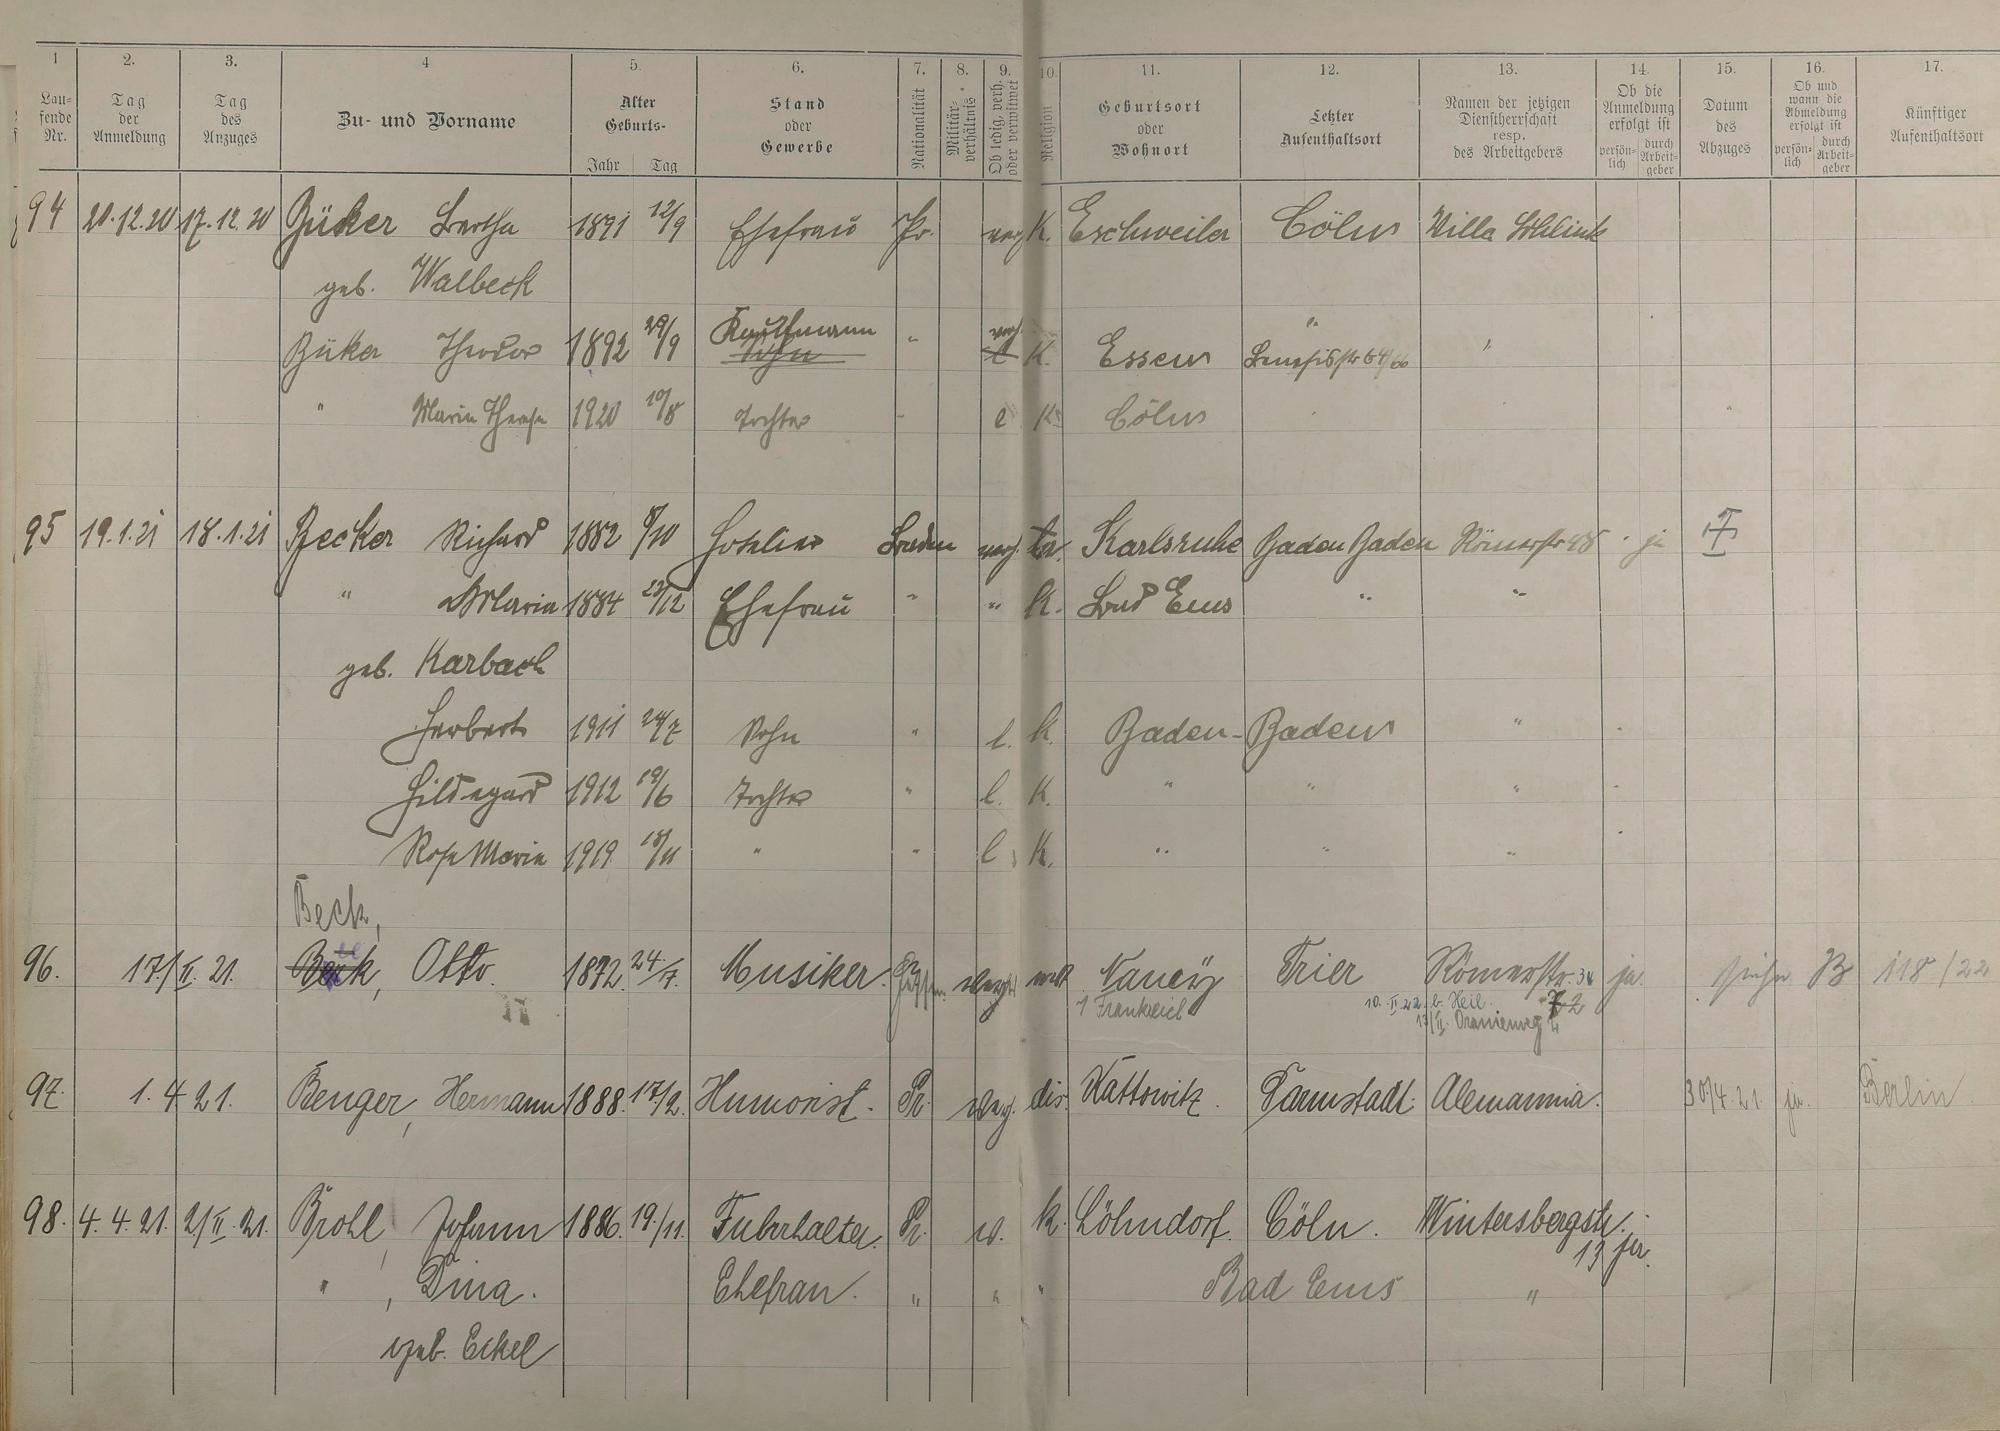 1 2. 3. 4 5. 6. 7. 8. 9. 10. 11. 12. 13. 14. 15. 16. 17.
Lau-fende Nr. Tag der Anmeldung Tag des Anzuges Zu- und Vorname Alter Geburts- Jahr Tag Stand oder Gewerbe Nationalität Militär-verhältnis Ob ledig, verh. oder verwitwet Religion Geburtsort oder Wohnort Letzter Aufenthaltsort Namen der jetzigen Dienstherrschaft resp. des Arbeitgebers Ob die Anmeldung erfolgt ist persön-lich durch Arbeit-geber Datum des Abzuges Ob und wann die Abmeldung erfolgt ist persön-lich durch Arbeit-geber Künftiger Aufenthaltsort
94 20.12.20 17.12.20 Büker Bertha 1891 12/9 Ehefrau Pr. K. Eschweiler Cöln Villa
geb. Walbeck
Büker Theodor 1892 29/9 Kauffmann Sohn " verh. l K. Essen " 64/66 "
" Maria Therese 1920 Tochter " l K. Cöln
95 19.1.21 18.1.21 Becker Richard 1882 8/10 Hotelier Baden verh. ev. Karlsruhe Baden Baden Römerstr 48 ja
" Maria 1884 23/12 Ehefrau " " K. Bad Ems " "
geb. Karbach
Herbert 1911 24/7 Sohn " l. K. Baden-Baden "
Hildegard 1912 19/6 Tochter " l. K. " " "
Rosa Maria 1919 18/11 " " l. K. " " "
Beck,
96. 17./II.21. Beck, Otto. 1872. 24./7. Musiker. Nancy Trier Römerstr. 34 ja. siehe B 118/22
Frankreich 10.II.22. b. Heil. 72
13/II. Oranienweg 4
97. 1.4.21. Benger, Hermann 1888. 17./2. Humorist. Pr. dis. Kattowitz. Darmstadt. Alemannia. 30/4.21. ja. Berlin.
98. 4.4.21. 2/II.21. Brohl, Johann 1886. 19./11. Fuhrhalter. Pr. v. k. Löhndorf. Cöln. Wintersbergstr.
13 ja.
" , Dina. Ehefrau. " " " Bad Ems "
geb. Eckel